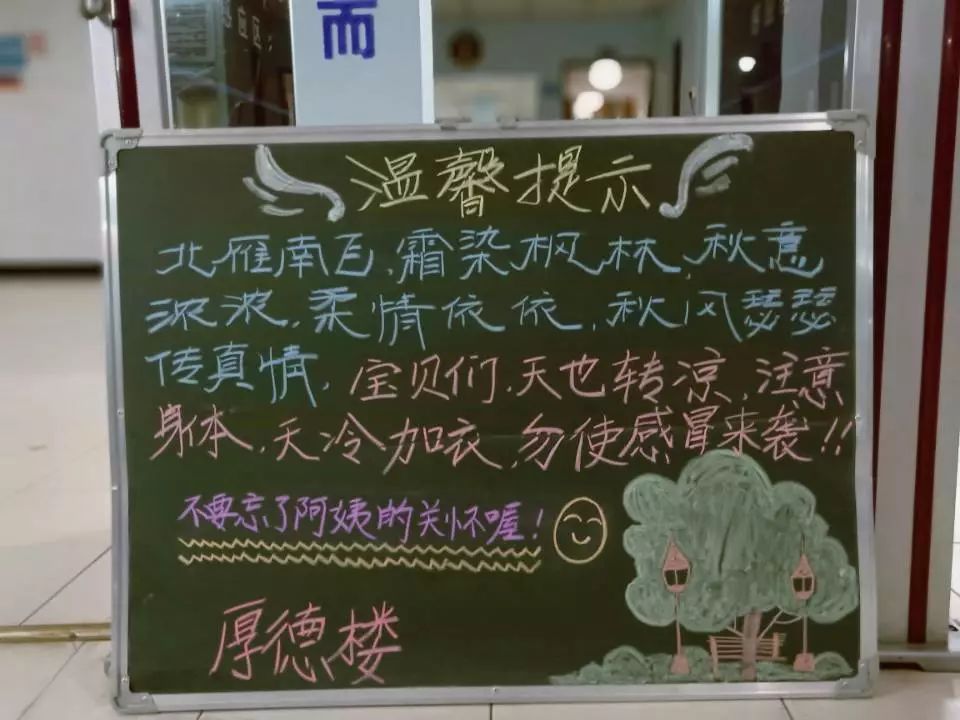 而
温馨提示
北雁南飞,霜染枫林,秋意
浓浓,柔情依依,秋风瑟瑟
传真情,宝贝们,天也转凉,注意
身本,天冷加衣,勿使感冒来袭!!
不要忘了阿姨的关怀喔!
厚德楼